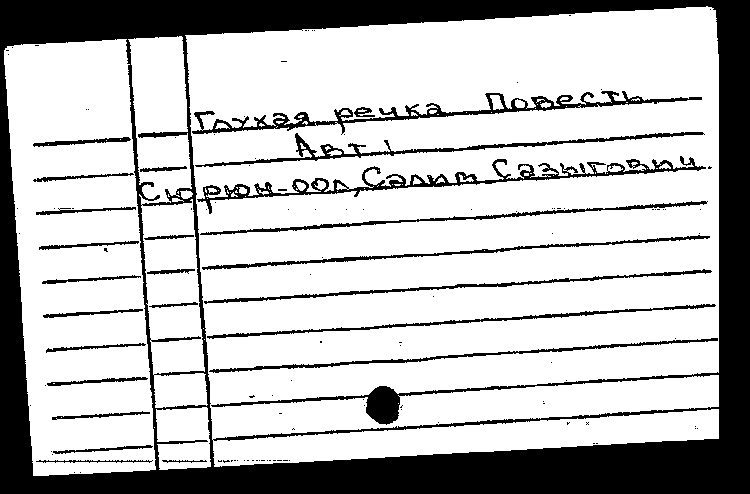 Глухая речка Повесть
Авт!
Сюрюн-оол, Салим Сазыгович